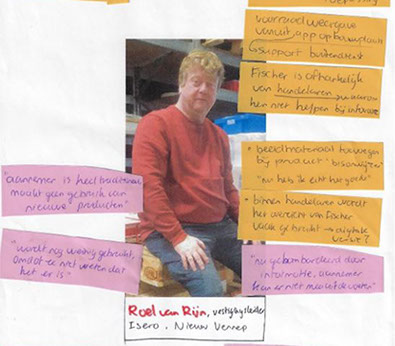 voorraad weergave
vanuit app op bouwplaats
↳ support buitendienst
Fischer is afhankelijk
van handelaren
hen niet helpen bij
• beeldmateriaal toevoegen
bij product
"nu heb ik echt het goede"
• binnen handelaren wordt
het overzicht van Fischer
vaak gebracht → digitale
versie?
"nu gebombardeerd door
informatie, aannemer
kan er niet mee uit de voeten"
"aannemer is heel traditioneel,
maakt geen gebruik van
nieuwe producten"
"wordt nog weinig gebruikt,
omdat ze niet weten dat
het er is"
Roel van Rijn, vestigingsleider
Isero, Nieuw Vennep